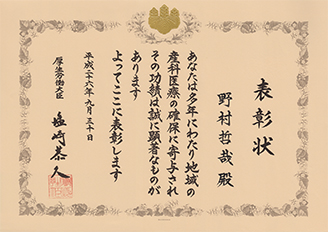 表彰状
野村哲哉殿
あなたは多年にわたり地域の
産科医療の確保に寄与され
その功績は誠に顕著なものが
あります
よってここに表彰します
平成二十六年九月三十日
厚生労働大臣
塩崎恭久